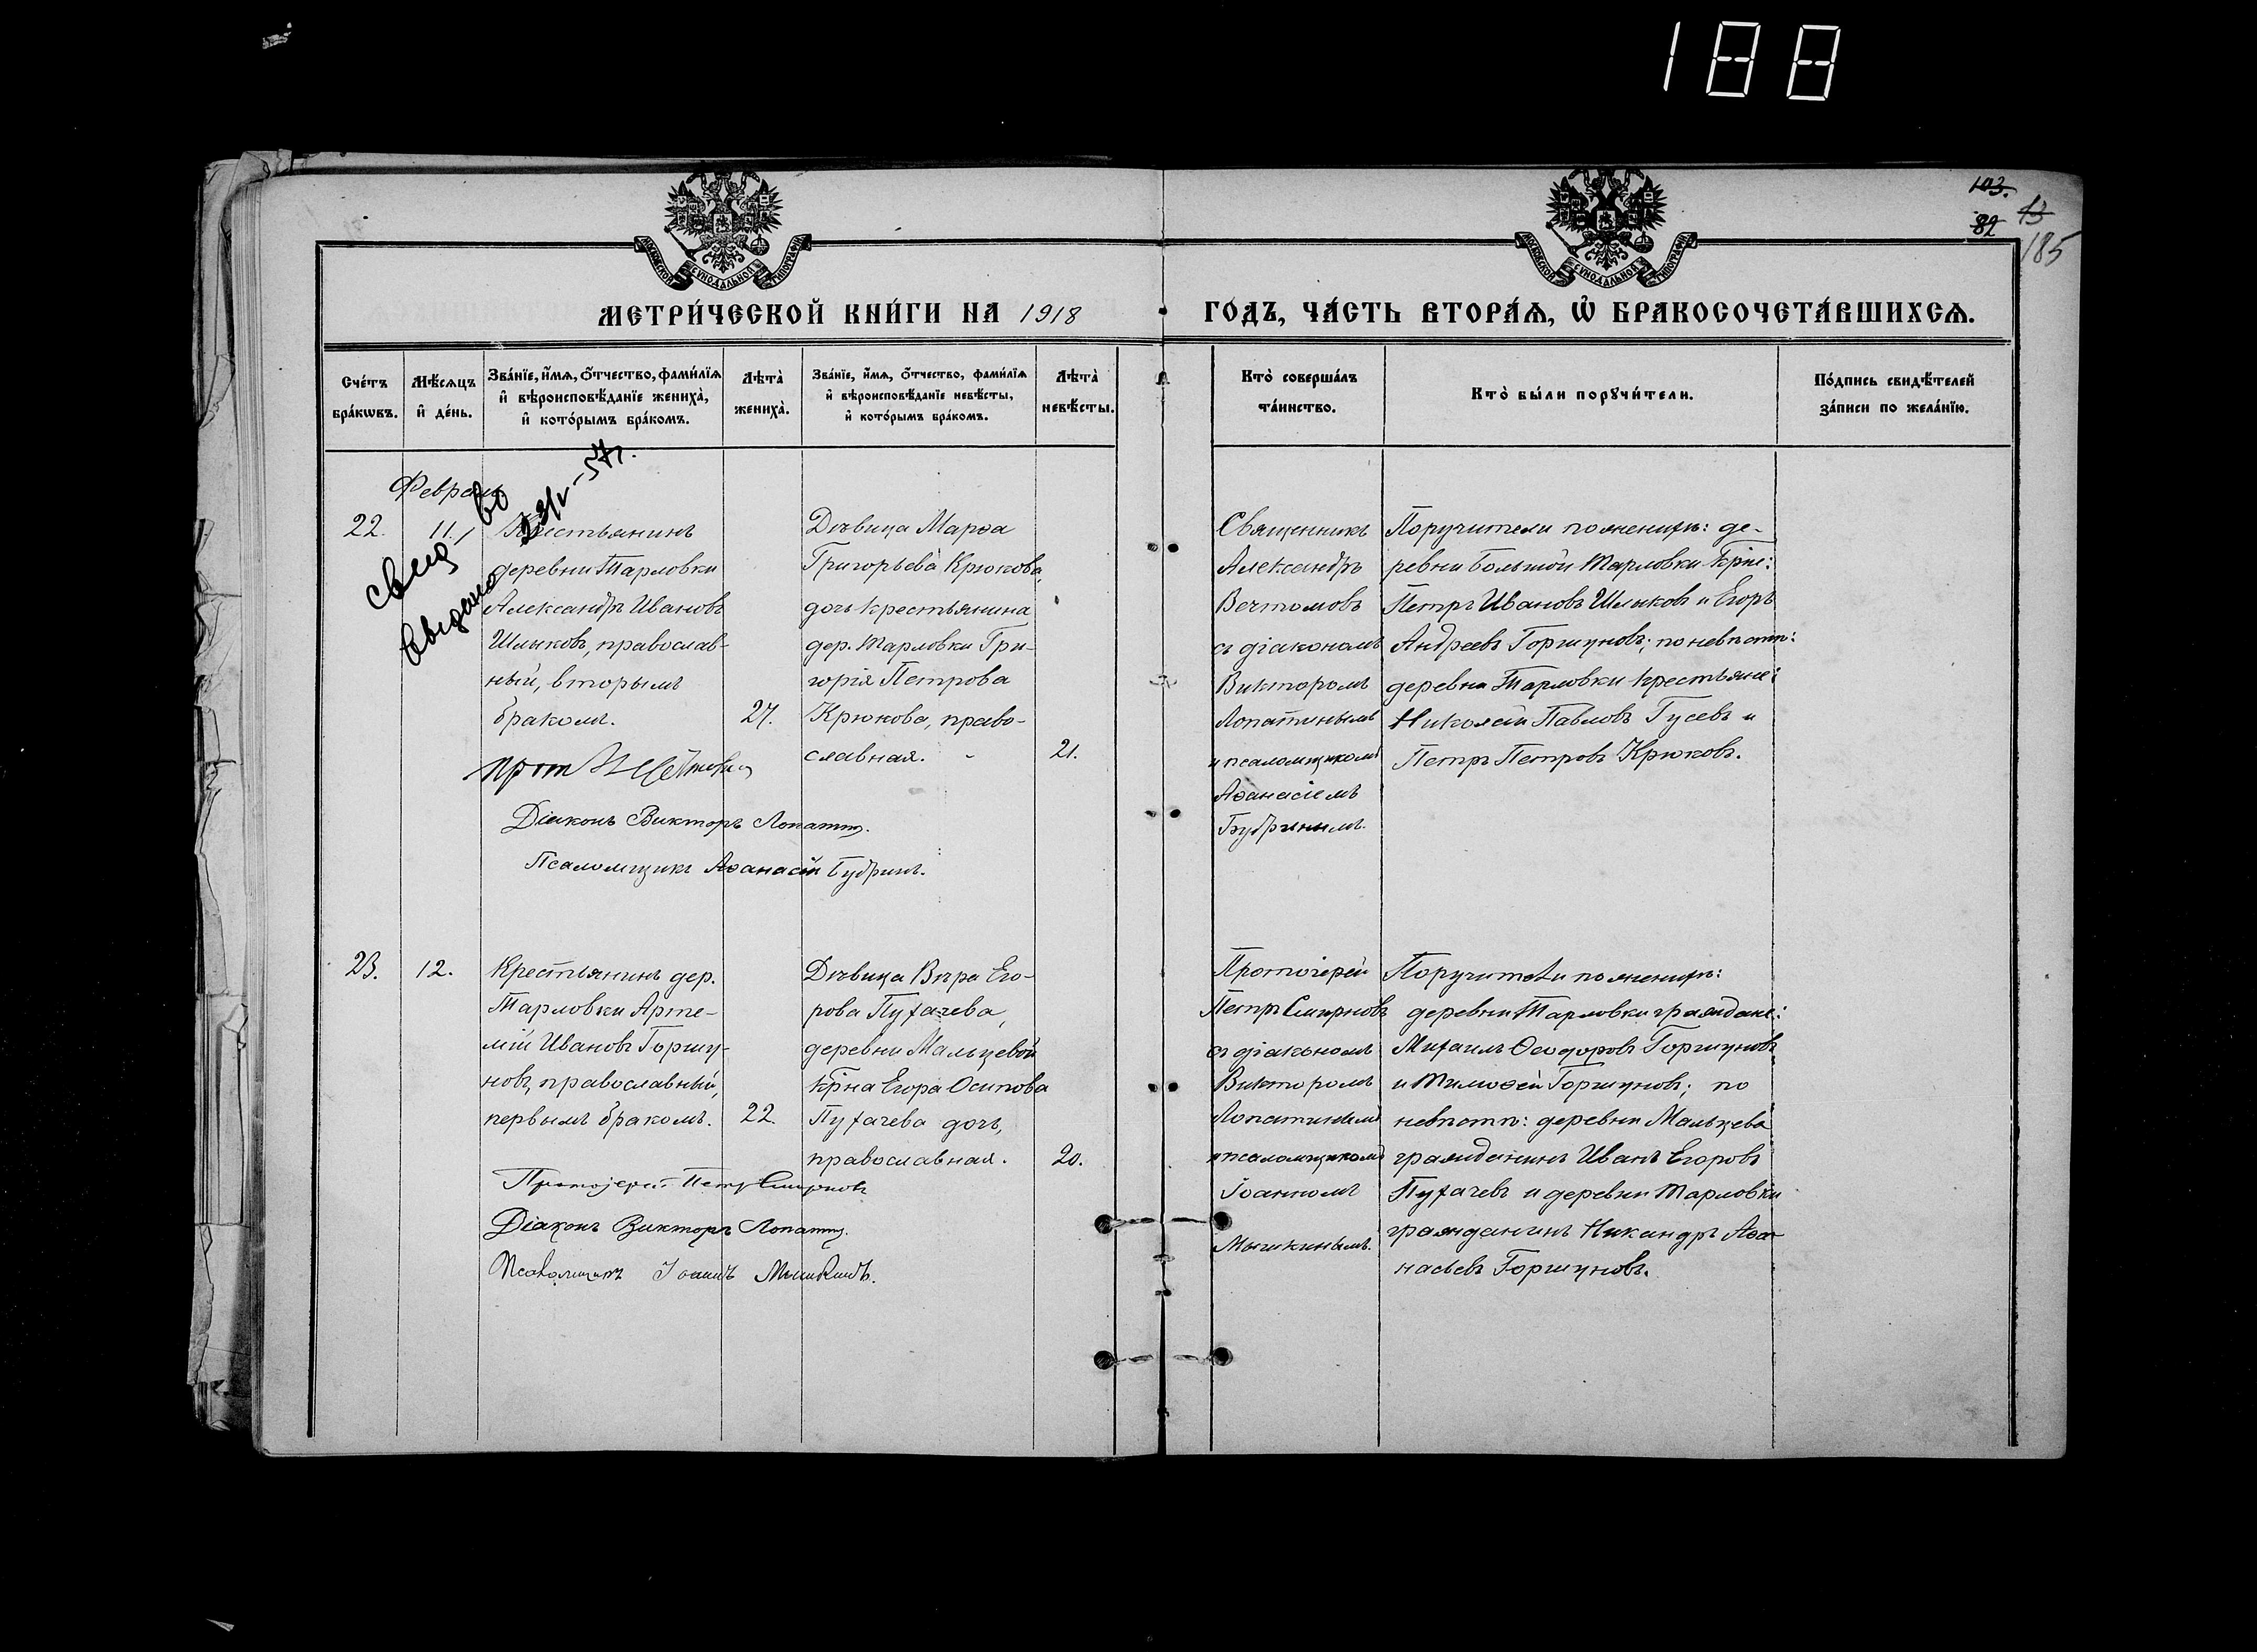 188
103.
82
13
185
МОСКОВСКОЙ СУНОДАЛЬНОЙ ТИПОГРАФІИ
МОСКОВСКОЙ СУНОДАЛЬНОЙ ТИПОГРАФІИ
МЕТРИ́ЧЕСКОЙ КНИ́ГИ НА 1918
ГО́ДЪ, ЧА́СТЬ ВТОРА́Ѧ, Ѡ҆ БРАКОСОЧЕТА́ВШИХСѦ.
Сче́тъ
бра́кѡвъ.
Мѣ́сѧцъ
и҆ де́нь.
Зва́нїе, и҆́мѧ, ѻ҆́тчество, фами́лїѧ
и҆ вѣроисповѣ́данїе жениха̀,
и҆ кото́рымъ бра́комъ.
Лѣта̀
жениха̀.
Зва́нїе, и҆́мѧ, ѻ҆́тчество, фами́лїѧ
и҆ вѣроисповѣ́данїе невѣ́сты,
и҆ кото́рымъ бра́комъ.
Лѣта̀
невѣ́сты.
Кто̀ соверша́лъ
та́инство.
Кто̀ бы́ли порꙋчи́тели.
По́дпись свидѣ́телей
за́писи по жела́нїю.
Февраль
22.
11.
Крестьянинъ
деревни Тарловки
Александръ Ивановъ
Шлыковъ, православ-
ный, вторымъ
бракомъ.
27.
Дѣвица Марѳа
Григорьева Крюкова,
дочь крестьянина
дер. Тарловки Гри-
горія Петрова
Крюкова, право-
славная.
21.
Священникъ
Александръ
Вечтомовъ
съ діакономъ
Викторомъ
Лопатинымъ
и псаломщикомъ
Аѳанасіемъ
Бубринымъ.
Поручители по женихѣ: де-
ревни Большой Тарловки крне:
Петръ Ивановъ Шлыковъ и Егоръ
Андреевъ Горшуновъ; по невѣстѣ:
деревни Тарловки крестьяне:
Николай Павловъ Гусевъ и
Петръ Петровъ Крюковъ.
выдано
-57г.
прот
Діаконъ Викторъ Лопатинъ.
Псаломщикъ Аѳанасій Бубринъ.
23.
12.
Крестьянинъ дер.
Тарловки Арте-
мій Ивановъ Горшу-
новъ, православный,
первымъ бракомъ.
22.
Дѣвица Вѣра Его-
рова Пугачева,
деревни Мальцевой
крна Егора Осипова
Пугачева дочь,
православная.
20.
Протоіерей
Петръ Смирновъ
съ діакономъ
Викторомъ
Лопатинымъ
и псаломщикомъ
Іоанномъ
Мышкинымъ.
Поручители по женихѣ:
деревни Тарловки граждане:
Михаилъ Ѳеодоровъ Горшуновъ
и Тимоѳей Горшуновъ; по
невѣстѣ: деревни Мальцева
гражданинъ Иванъ Егоровъ
Пугачевъ и деревни Тарловки
гражданинъ Никандръ Аѳа-
насьевъ Горшуновъ.
Протоіерей Петръ Смирновъ
Діаконъ Викторъ Лопатинъ.
Псаломщикъ Іоаннъ Мышкинъ.